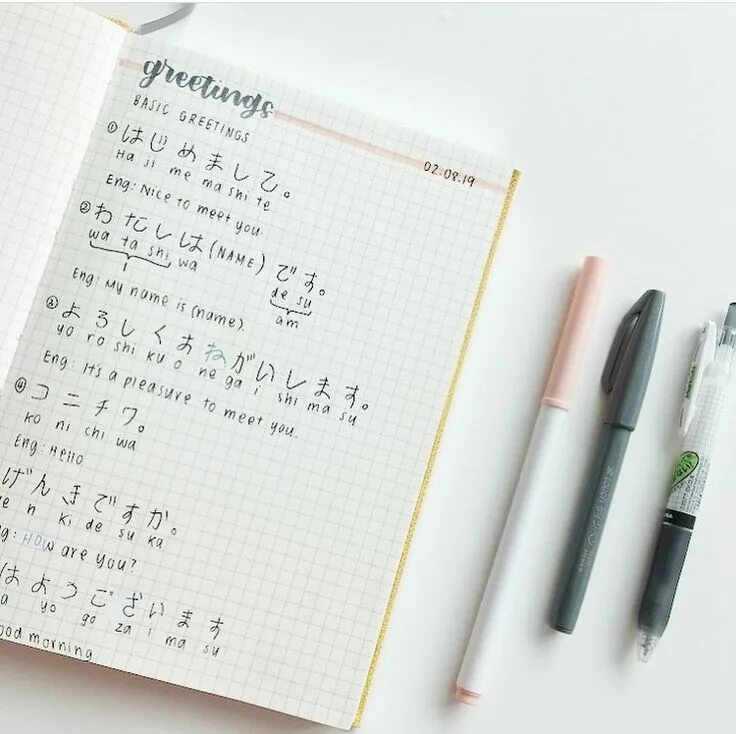 greetings
02.08.19
BASIC GREETINGS
① はじめまして。
Ha ji me ma shi te
Eng: Nice to meet you.
② わたしは (NAME) です。
wa ta shi wa de su
I am
Eng: My name is (name).
③ よろしくおねがいします。
yo ro shi ku o ne ga i shi ma su
Eng: It's a pleasure to meet you.
④ コニチワ。
ko ni chi wa
Eng: Hello
げんきですか。
n ki de su ka
How are you?
はようございます
yo go za i ma su
morning